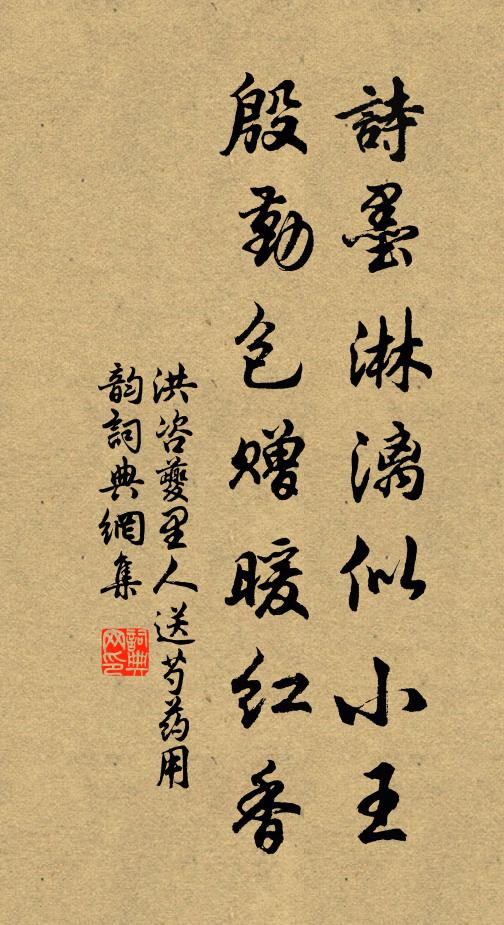 詩墨淋漓似小王
殷勤包贈暖紅香
洪咨夔里人送芍药用
韵詞典網集
詞典网印